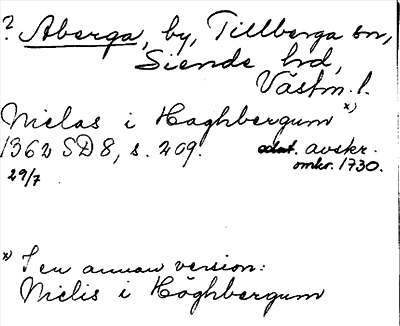 ? Aberga, by, Tillberga sn,
Siende hd,
Västm. l.
Niclas i Haghbergum x)
1362 SD 8, s. 209. avskr.
29/7 omkr. 1730.
x) I en annan version:
Niclis i Höghbergum